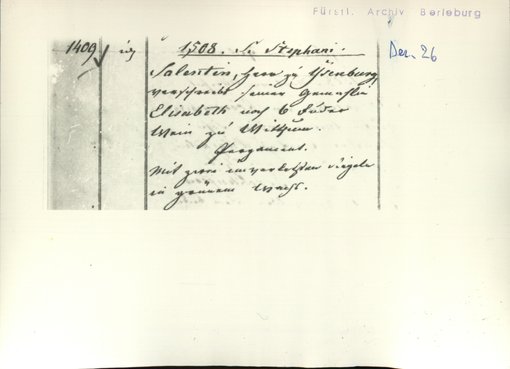 Fürstl. Archiv Berleburg
1409
1508. S. Stephani.
Dez. 26
Salentin, Herr zu Ysenburg,
verschreibt seiner Gemahlin
Elisabeth noch 6 Fuder
Wein zu Witthum.
Pergament.
Mit zwei unverletzten Siegeln
in grünem Wachs.